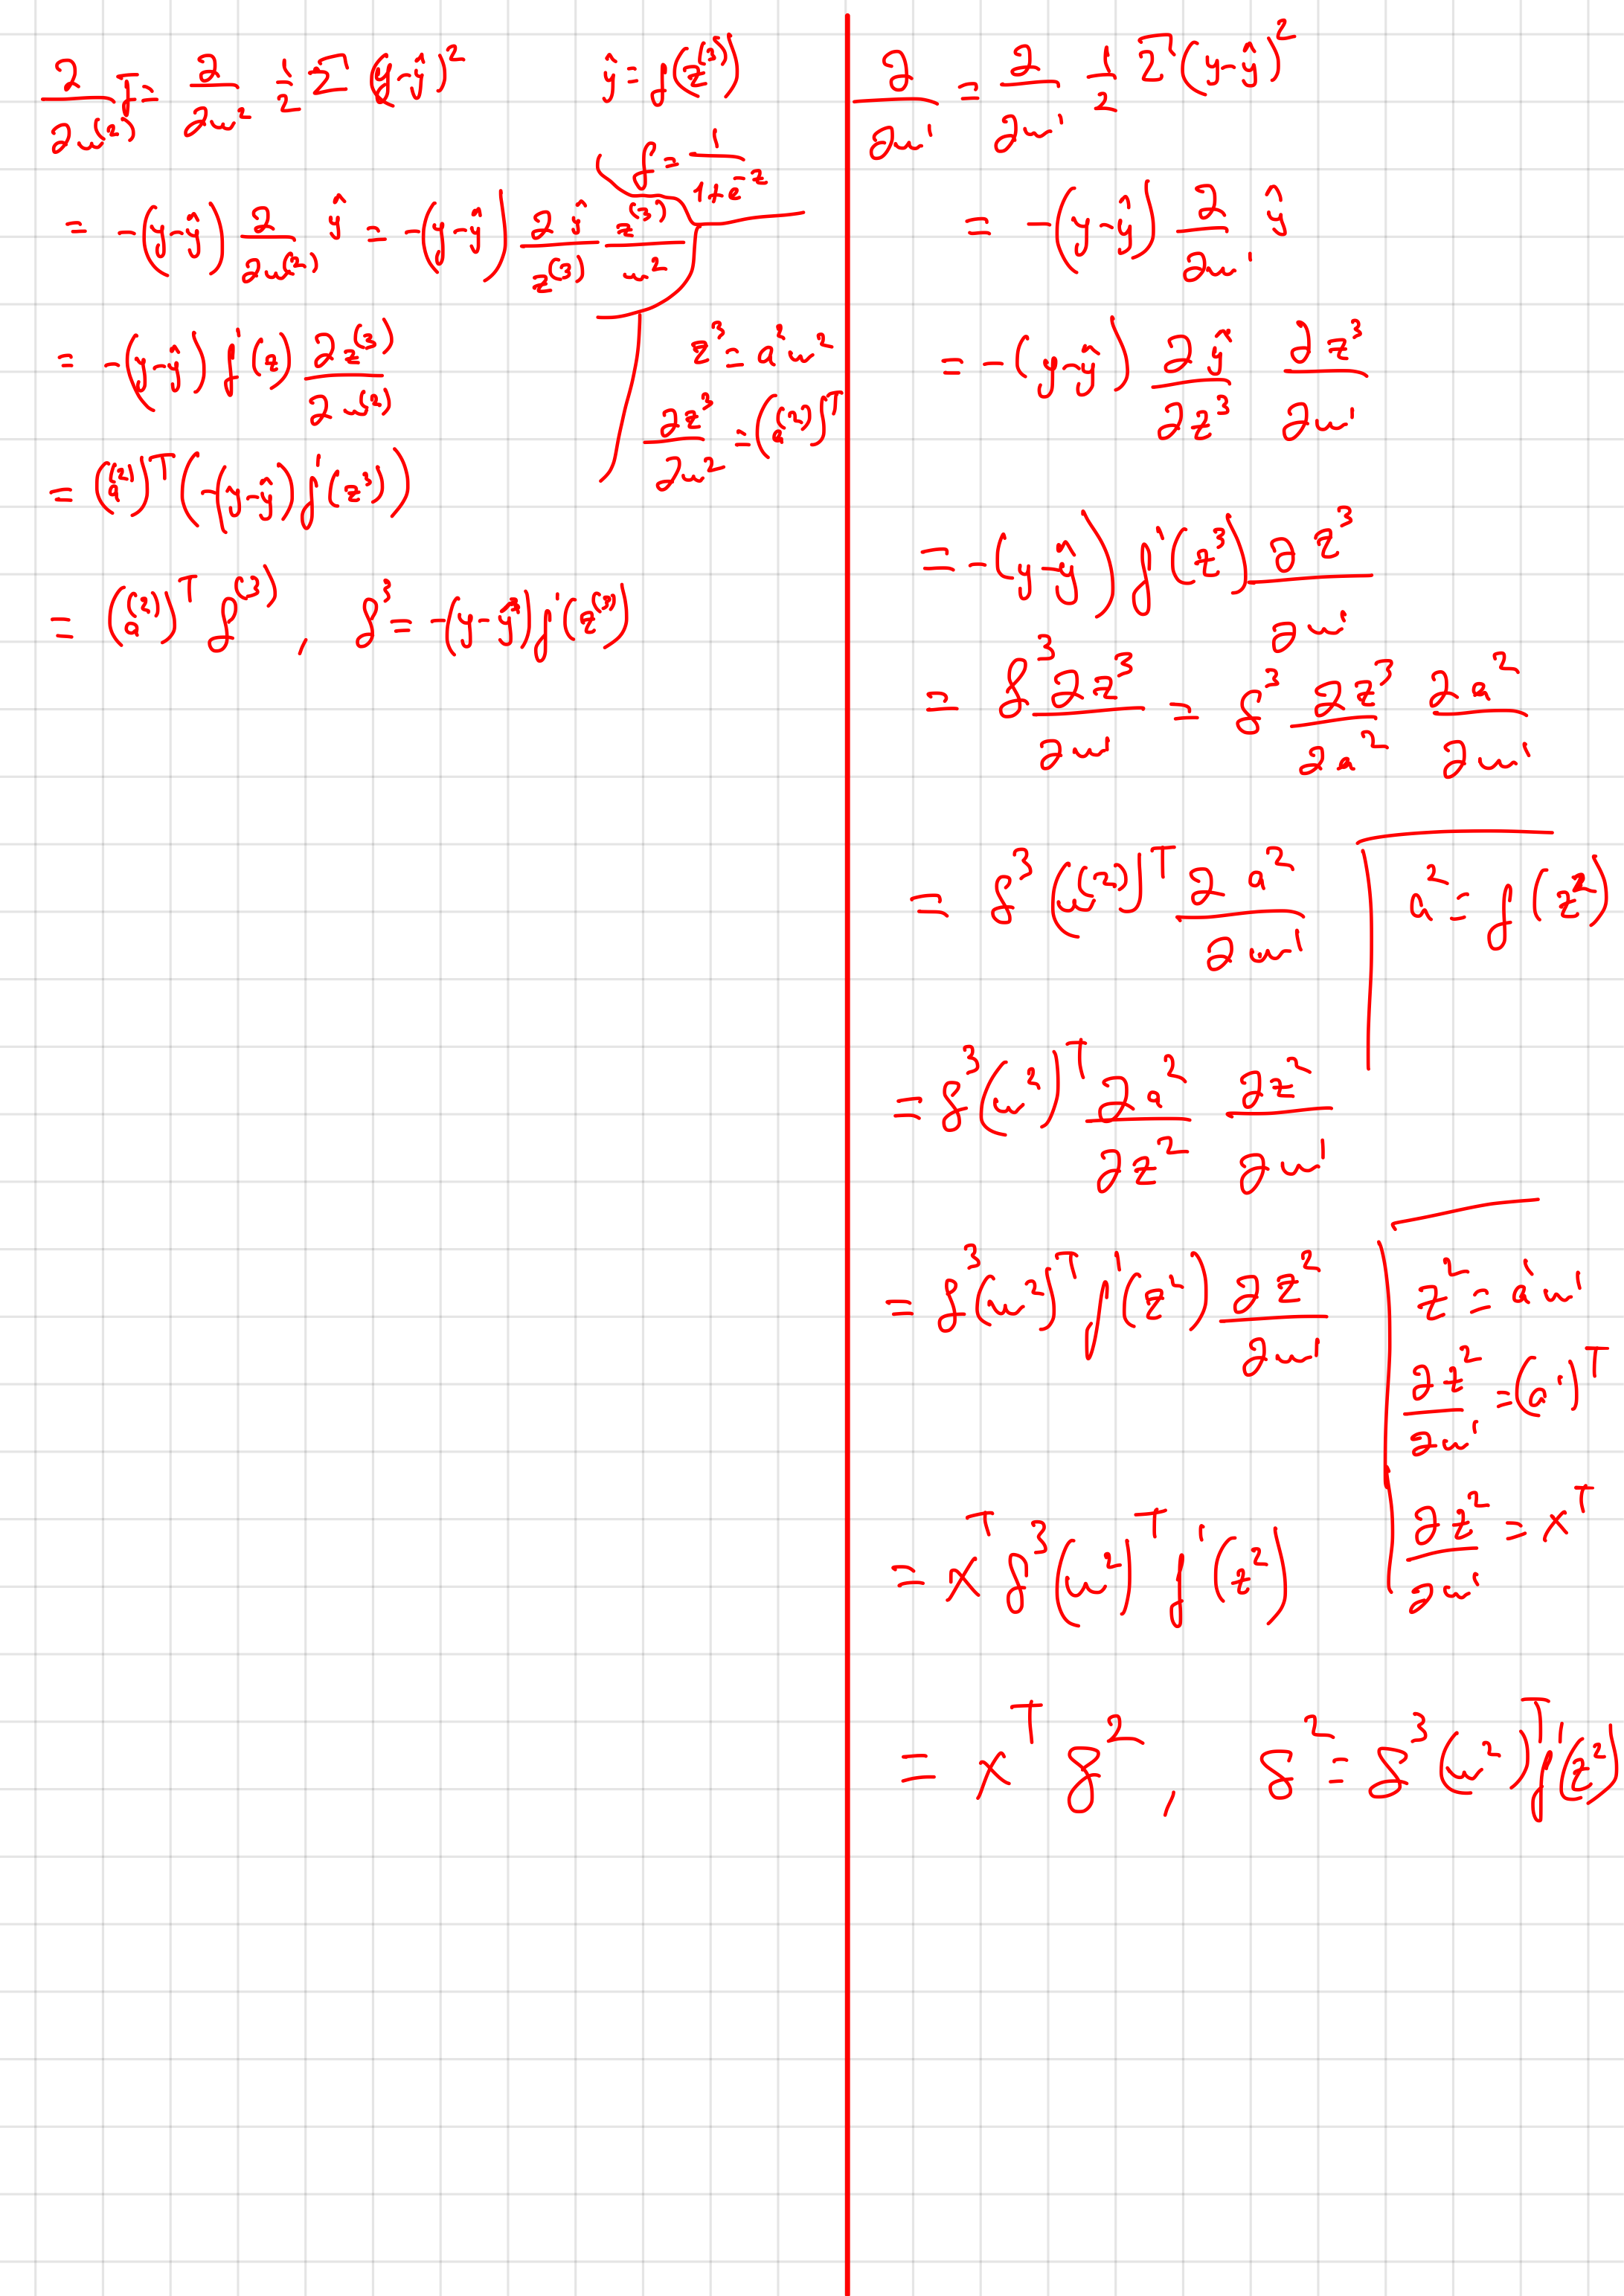 ∂/∂w⁽²⁾ J = ∂/∂w² 1/2 Σ (y-ŷ)²
ŷ = f(z⁽³⁾)
f = 1/(1+e^-z)
= -(y-ŷ) ∂/∂w⁽²⁾ ŷ = -(y-ŷ) ∂ŷ/z⁽³⁾ z⁽³⁾/w²
= -(y-ŷ) f'(z) ∂z⁽³⁾/∂w⁽²⁾
z³ = a²w²
∂z³/∂w² = (a⁽²⁾)ᵀ
= (a⁽²⁾)ᵀ (-(y-ŷ) f'(z³))
= (a⁽²⁾)ᵀ δ⁽³⁾ , δ³ = -(y-ŷ) f'(z⁽³⁾)
∂/∂w¹ = ∂/∂w¹ 1/2 Σ (y-ŷ)²
= -(y-ŷ) ∂/∂w¹ ŷ
= -(y-ŷ) ∂ŷ/∂z³ ∂z³/∂w¹
= -(y-ŷ) f'(z³) ∂z³/∂w¹
= δ³ ∂z³/∂w¹ = δ³ ∂z³/∂a² ∂a²/∂w¹
= δ³ (w⁽²⁾)ᵀ ∂a²/∂w¹
a² = f(z²)
= δ³ (w²)ᵀ ∂a²/∂z² ∂z²/∂w¹
= δ³ (w²)ᵀ f'(z²) ∂z²/∂w¹
z² = a¹w¹
∂z²/∂w¹ = (a¹)ᵀ
∂z²/∂w¹ = xᵀ
= xᵀ δ³ (w²)ᵀ f'(z²)
= xᵀ δ² , δ² = δ³ (w²)ᵀ f'(z²)